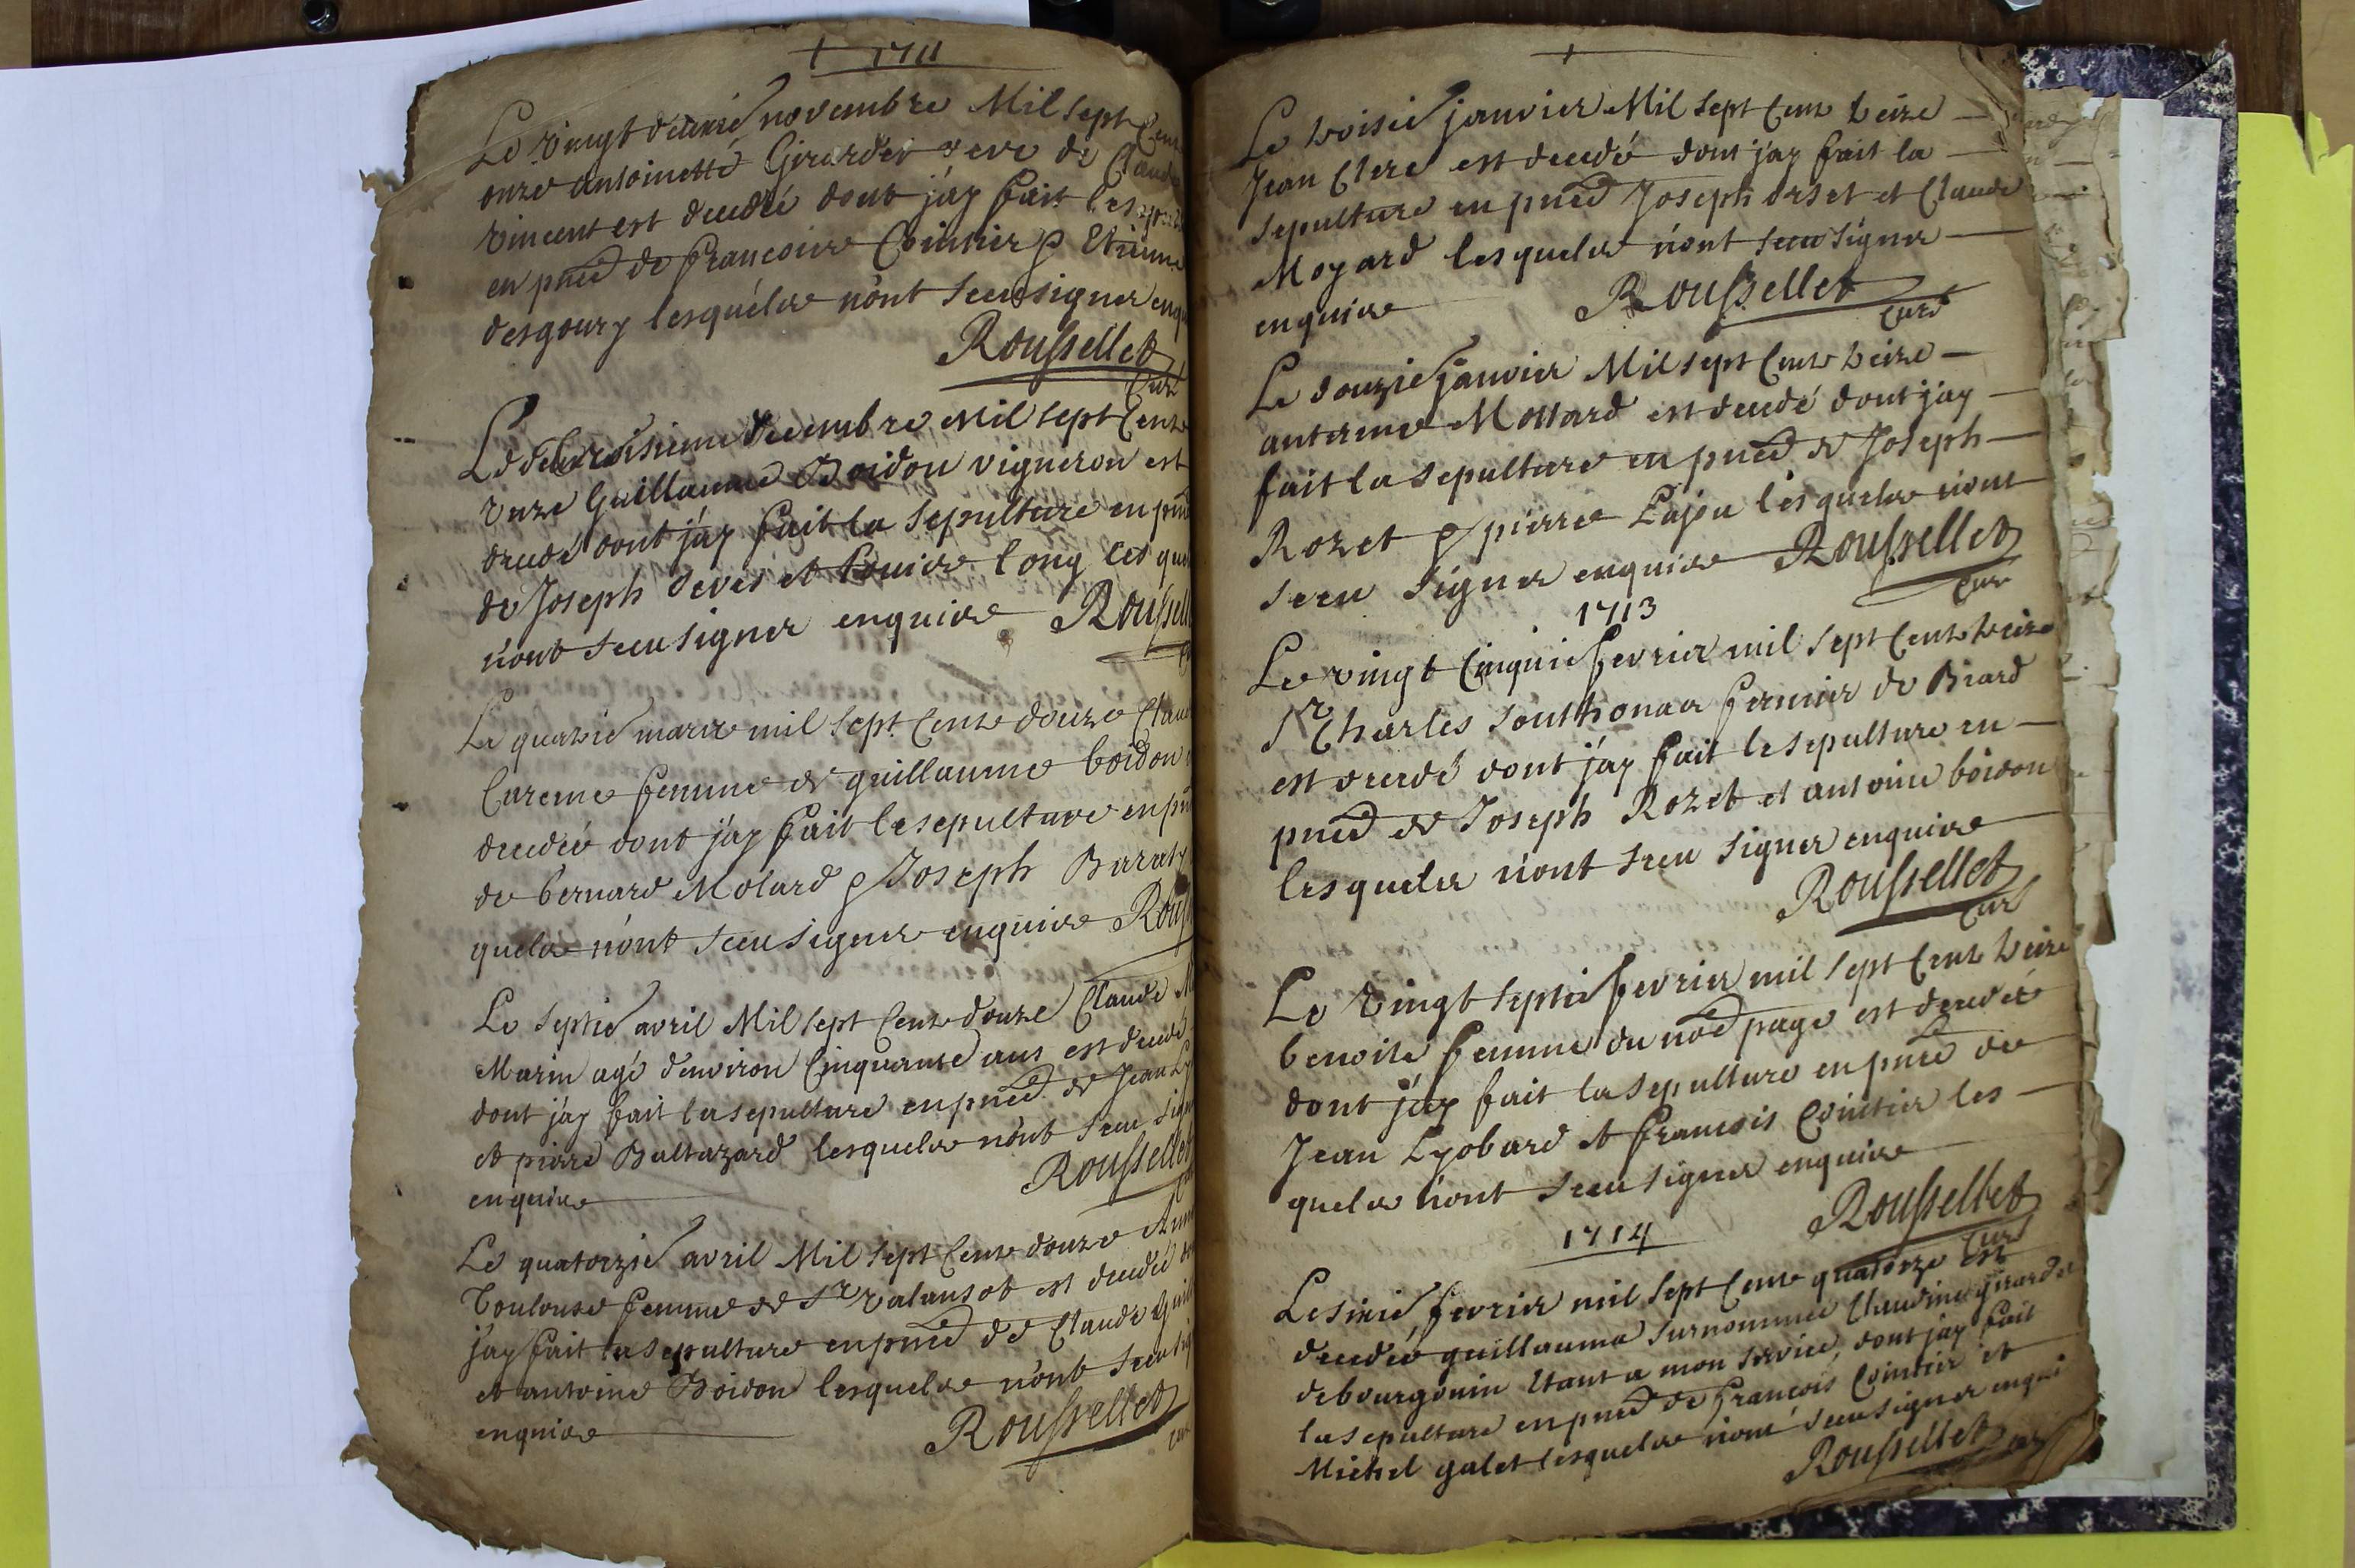 + 1711
Le vingt deuxié novembre Mil sept Cent
onze antoinette Girardet veve de Claude
vincent est decedée dont j'ay fait
en pnce de francoise Cointier & Etienne
desgoury lesquels n'ont sceu signer
Roussellet
Curé
Le decembre Mil sept Cent
onze Guillaume Boidon vigneron est
decedé dont j'ay fait la sepulture en
de Joseph devés et Long les
n'ont sceu signer enquire
Le quatrié mars mil sept Cent douze
Careme femme de guillaume boidon
decedée dont j'ay fait la sepulture en
de bernard Molard & Joseph
quels n'ont sceu signer enquire
Le septié avril Mil sept Cent douze Claude
Marin agé d'environ Cinquante ans est decedé
dont j'ay fait la sepulture en pnce de Jean
et pierre Baltazard lesquels n'ont sceu
enquire Roussellet
Le quatorzié avril Mil sept Cent douze
Toulouse femme de Sr valansot est decedée
j'ay fait la sepulture en pnce de Claude
et antoine Boidon lesquels n'ont sceu
enquire Roussellet
+
Le troisié janvier Mil sept Cent treize
Jean Clerc est decedé dont j'ay fait la
sepulture en pnce Joseph orset et Claude
Moyard lesquels n'ont sceu signer
enquire Roussellet
Curé
Le douzié janvier Mil sept Cent treize
Mottard est decedé dont j'ay
fait la sepulture en pnce de Joseph
Rozet & pierre Lajou lesquels n'ont
sceu signer enquire Roussellet
Curé
1713
Le vingt Cinquié fevrier mil sept Cent treize
Sr Charles Southonax fermier de Biard
est decedé dont j'ay fait la sepulture en
pnce de Joseph Rozet et antoine boidon
lesquels n'ont sceu signer enquire
Roussellet
Curé
Le vingt septié fevrier mil sept Cent treize
benoite femme du nōé page est decedée
dont j'ay fait la sepulture en pnce de
Jean Lyobard et francois Cointier les
quels n'ont sceu signer enquire
Roussellet
Curé
1714
Le sixié fevrier mil sept Cent quatorze est
decedée guillauma surnommée Claudine girardet
de bourgouin Etant a mon service, dont j'ay fait
la sepulture en pnce de François Cointier et
Michel galet lesquels n'ont sceu signer enqui
Roussellet